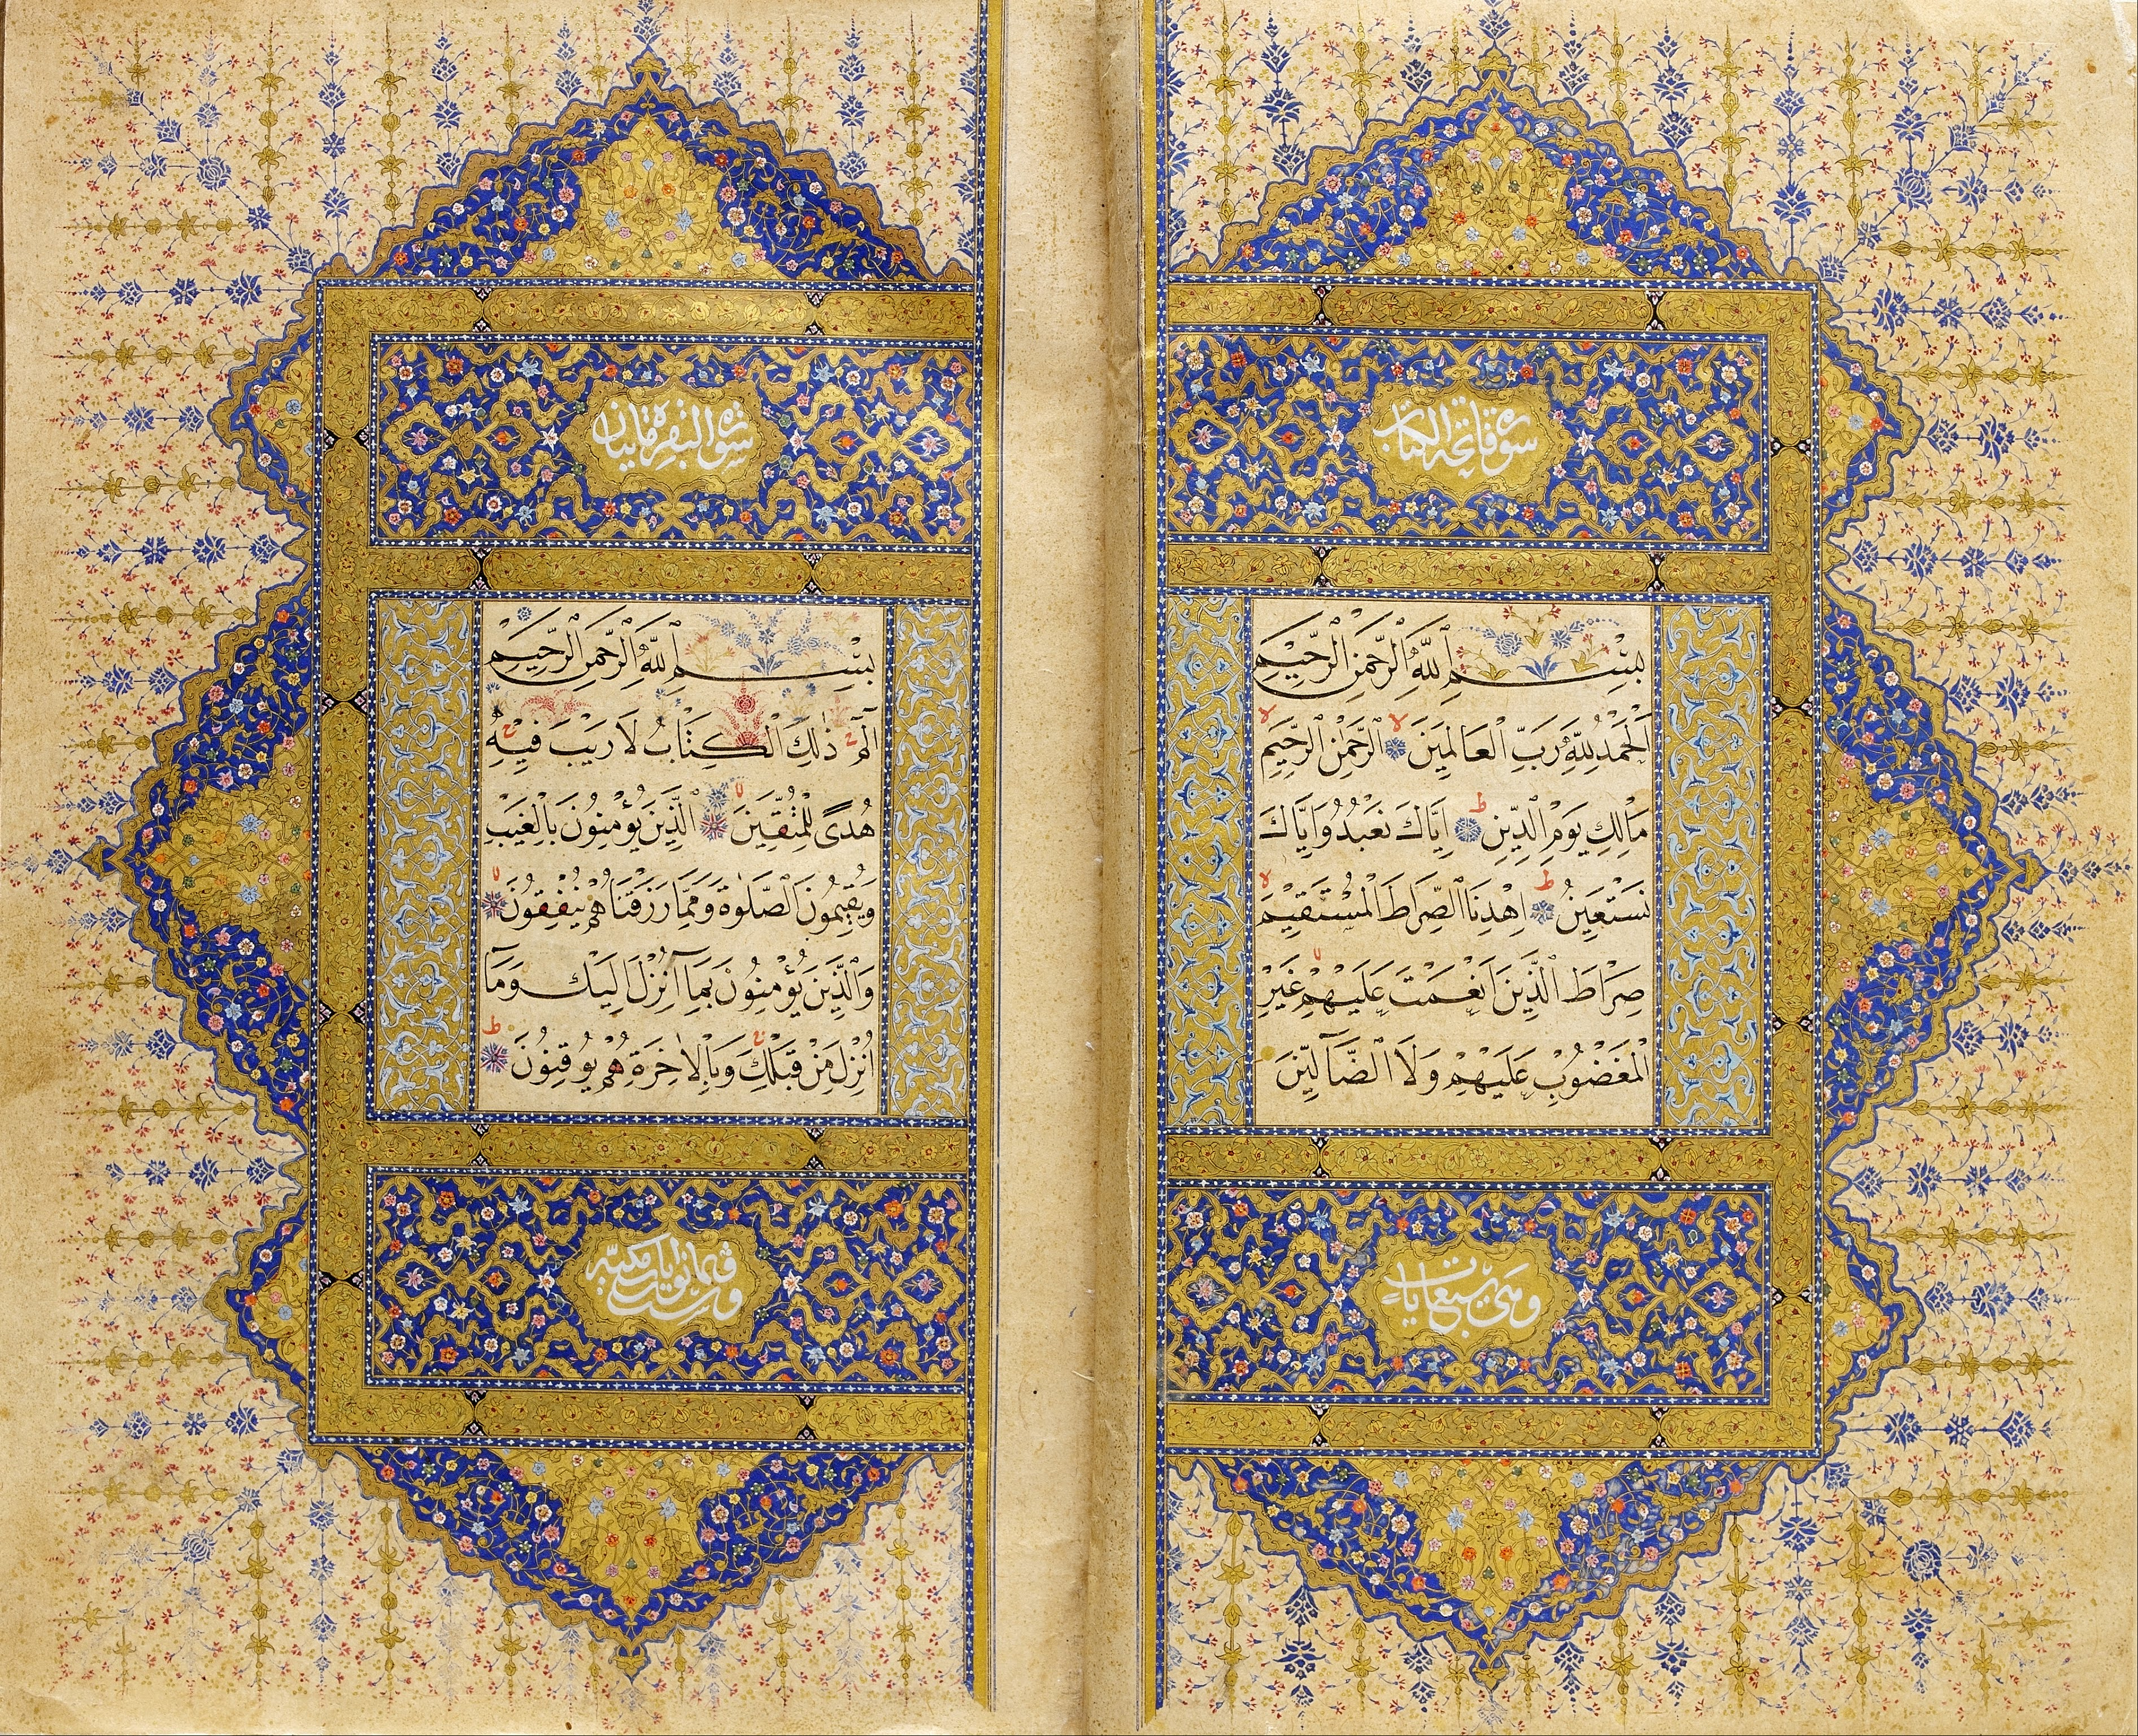 سورة فاتحة الكتاب
بِسْمِ ٱللَّهِ ٱلرَّحْمَنِ ٱلرَّحِيمِ
اَلْحَمْدُ لِلَّهِ رَبِّ الْعَالَمِينَ لا اَلرَّحْمٰنِ الرَّحِيمِ لا
مَالِكِ يَوْمِ الدِّينِ ط اِيَّاكَ نَعْبُدُ وَاِيَّاكَ
نَسْتَعِينُ ط اِهْدِنَا الصِّرَاطَ الْمُسْتَقِيمَ لا
صِرَاطَ الَّذِينَ اَنْعَمْتَ عَلَيْهِمْ لا غَيْرِ
الْمَغْضُوبِ عَلَيْهِمْ وَلَا الضَّآلِّينَ
وهي سبع آيات
سورة البقرة مايتان
بِسْمِ ٱللَّهِ ٱلرَّحْمَنِ ٱلرَّحِيمِ
الٓمٓ ج ذٰلِكَ الْكِتَابُ لَا رَيْبَ فِيهِ ج
هُدًى لِلْمُتَّقِينَ لا الَّذِينَ يُؤْمِنُونَ بِالْغَيْبِ
وَيُقِيمُونَ الصَّلٰوةَ وَمِمَّا رَزَقْنَاهُمْ يُنْفِقُونَ لا
وَالَّذِينَ يُؤْمِنُونَ بِمَآ اُنْزِلَ اِلَيْكَ وَمَآ
اُنْزِلَ مِنْ قَبْلِكَ ج وَبِالْاٰخِرَةِ هُمْ يُوقِنُونَ ط
وست وثمانون آيات مكية